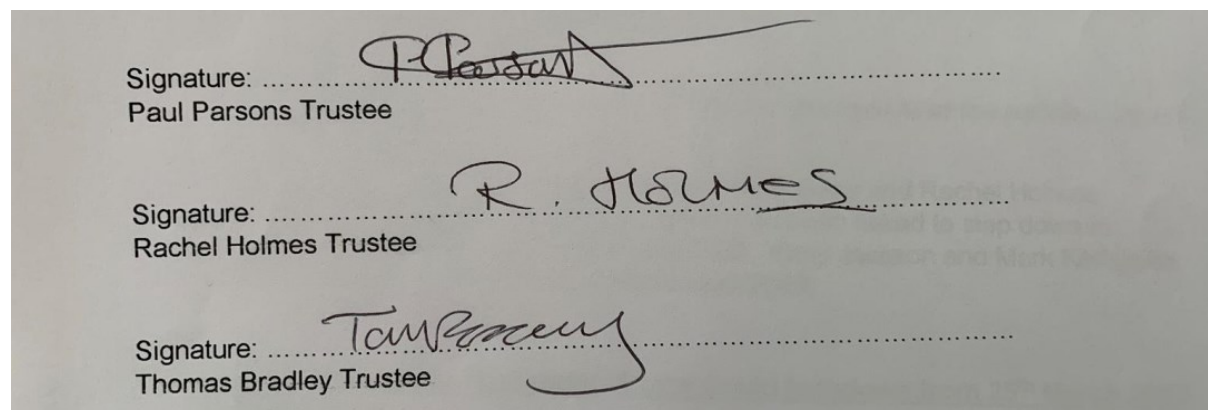 Signature: ... P Parsons ...
Paul Parsons Trustee
Signature: ... R. HOLMES ...
Rachel Holmes Trustee
Signature: ... Tom Bradley ...
Thomas Bradley Trustee